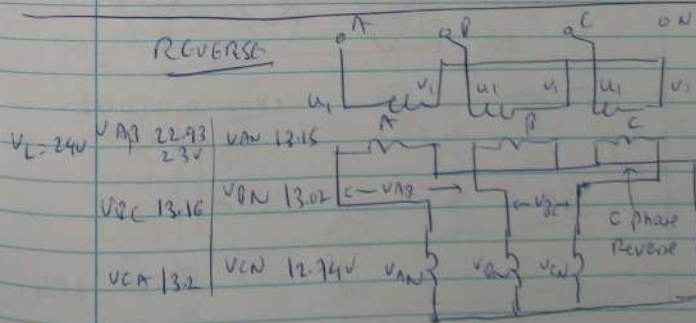 A B C N
REVERSE
u1 v1 u1 v1 u1 v1
A B C
VL = 24V VAB 22.93 VAN 13.15
23V
VBC 13.16 VBN 13.02 <- VAB -> <- VBC ->
C phase
Reverse
VCA 13.2 VCN 12.74V VAN VBN VCN